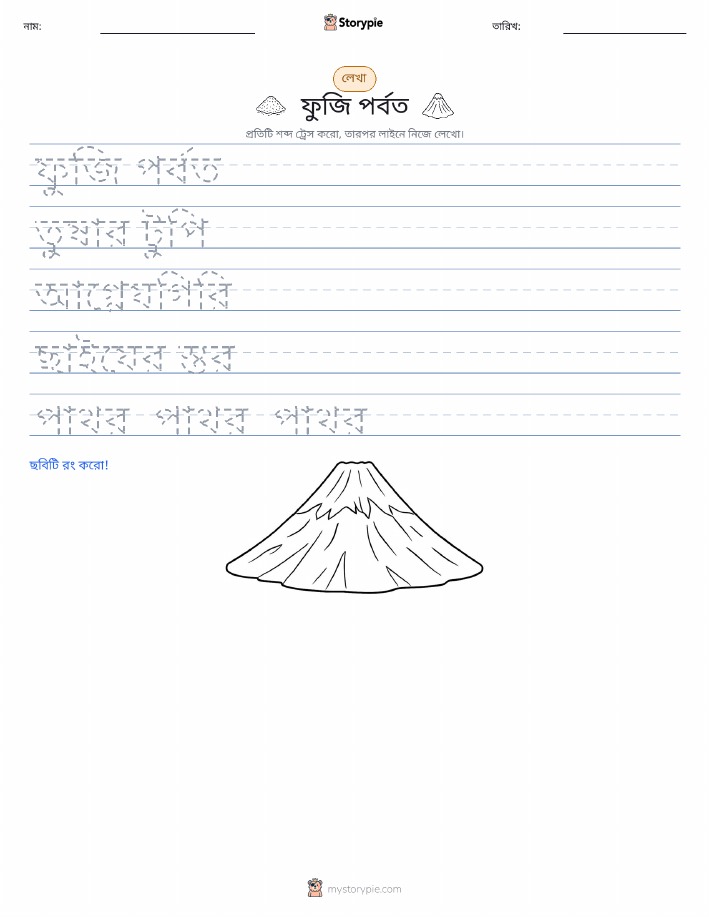 নাম:
Storypie
তারিখ:
লেখা
ফুজি পর্বত
প্রতিটি শব্দ ট্রেস করো, তারপর লাইনে নিজে লেখো।
ফুজি পর্বত
তুষার টুপি
আগ্নেয়গিরি
ছাইয়ের স্তর
পাথর পাথর পাথর
ছবিটি রং করো!
mystorypie.com